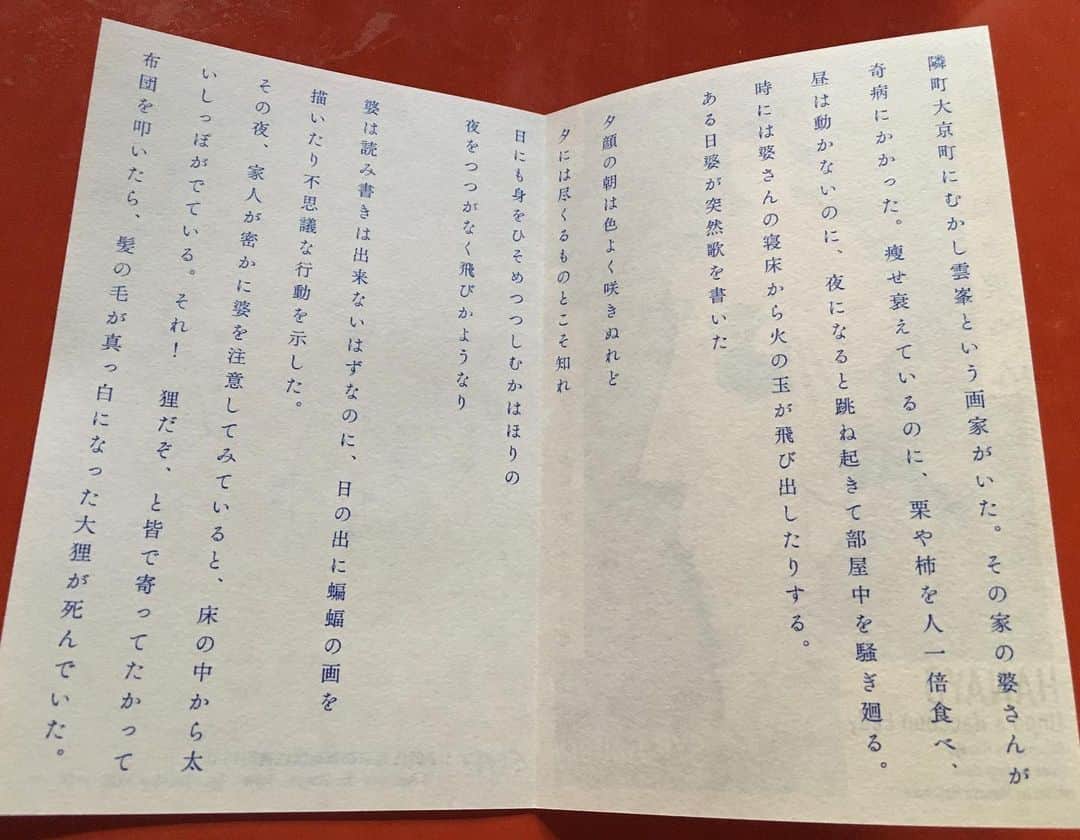 隣町大京町にむかし雲峯という画家がいた。その家の婆さんが
奇病にかかった。痩せ衰えているのに、栗や柿を人一倍食べ、
昼は動かないのに、夜になると跳ね起きて部屋中を騒ぎ廻る。
時には婆さんの寝床から火の玉が飛び出したりする。
ある日婆が突然歌を書いた
夕顔の朝は色よく咲きぬれど
夕には尽くるものとこそ知れ
日にも身をひそめつつしむかはほりの
夜をつつがなく飛びかようなり
婆は読み書きは出来ないはずなのに、日の出に蝙蝠の画を
描いたり不思議な行動を示した。
その夜、家人が密かに婆を注意してみていると、床の中から太
いしっぽがでている。それ！　狸だぞ、と皆で寄ってたかって
布団を叩いたら、髪の毛が真っ白になった大狸が死んでいた。